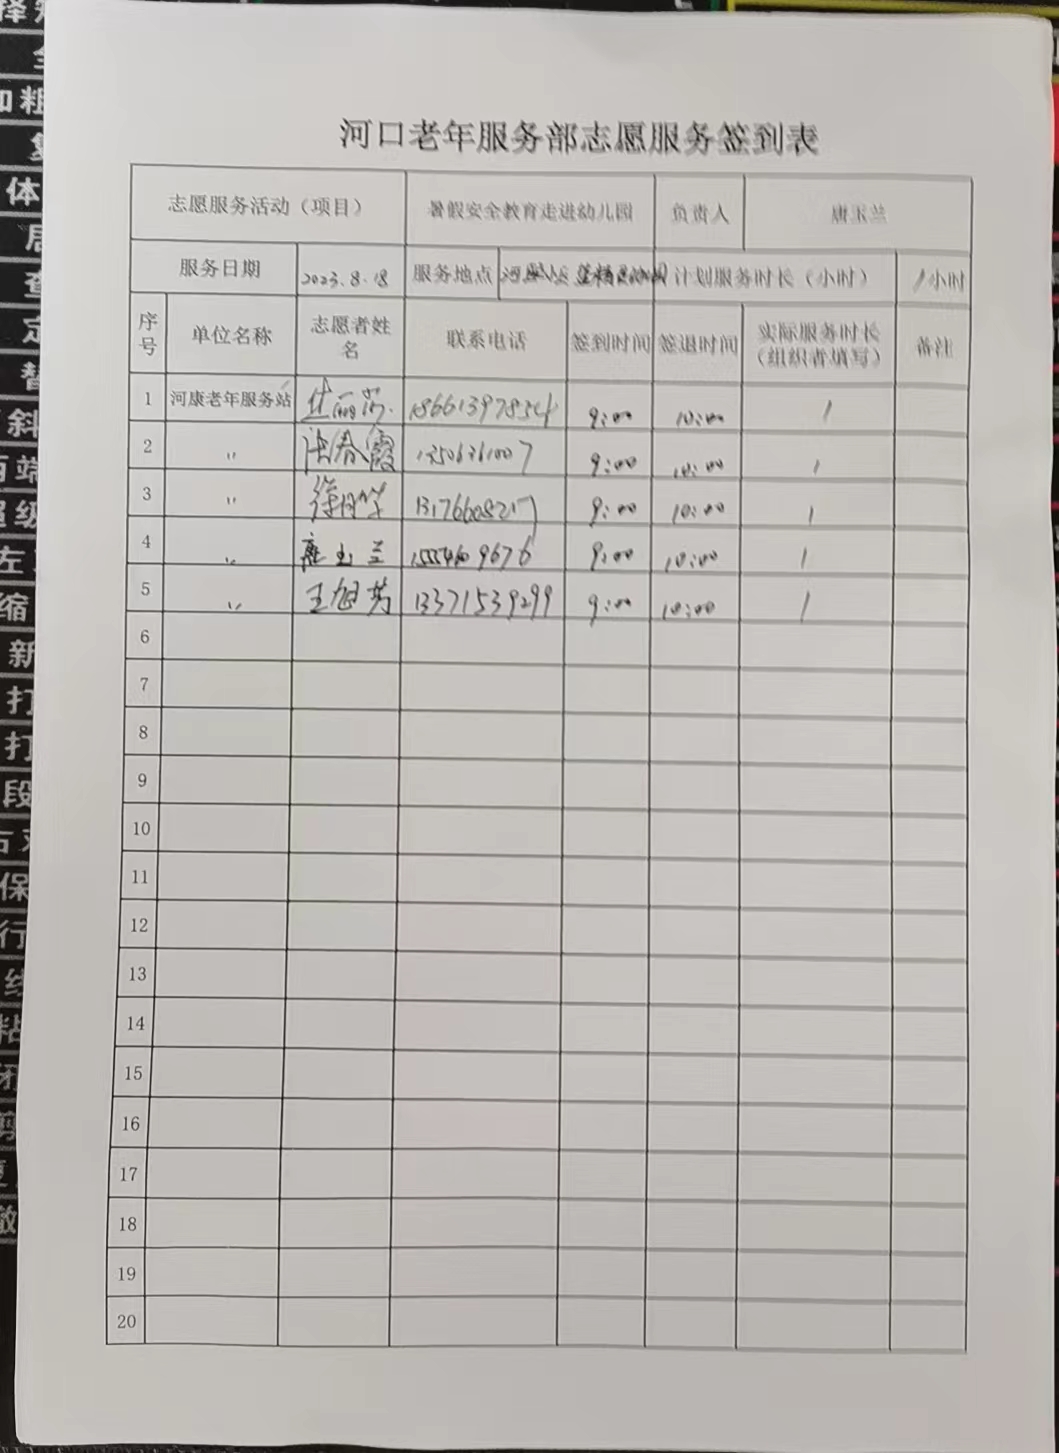 河口老年服务部志愿服务签到表
志愿服务活动（项目） 暑假安全教育走进幼儿园 负责人 唐玉兰
服务日期 2023.8.18 服务地点 计划服务时长（小时） 1小时
序号 单位名称 志愿者姓名 联系电话 签到时间 签退时间 实际服务时长（组织者填写） 备注
1 河康老年服务站 18661397854 9:00 10:00 1
2 〃 张春霞 9:00 10:00 1
3 〃 9:00 10:00 1
4 〃 唐玉兰 15554609676 9:00 10:00 1
5 〃 王旭芳 13371539299 9:00 10:00 1
6
7
8
9
10
11
12
13
14
15
16
17
18
19
20